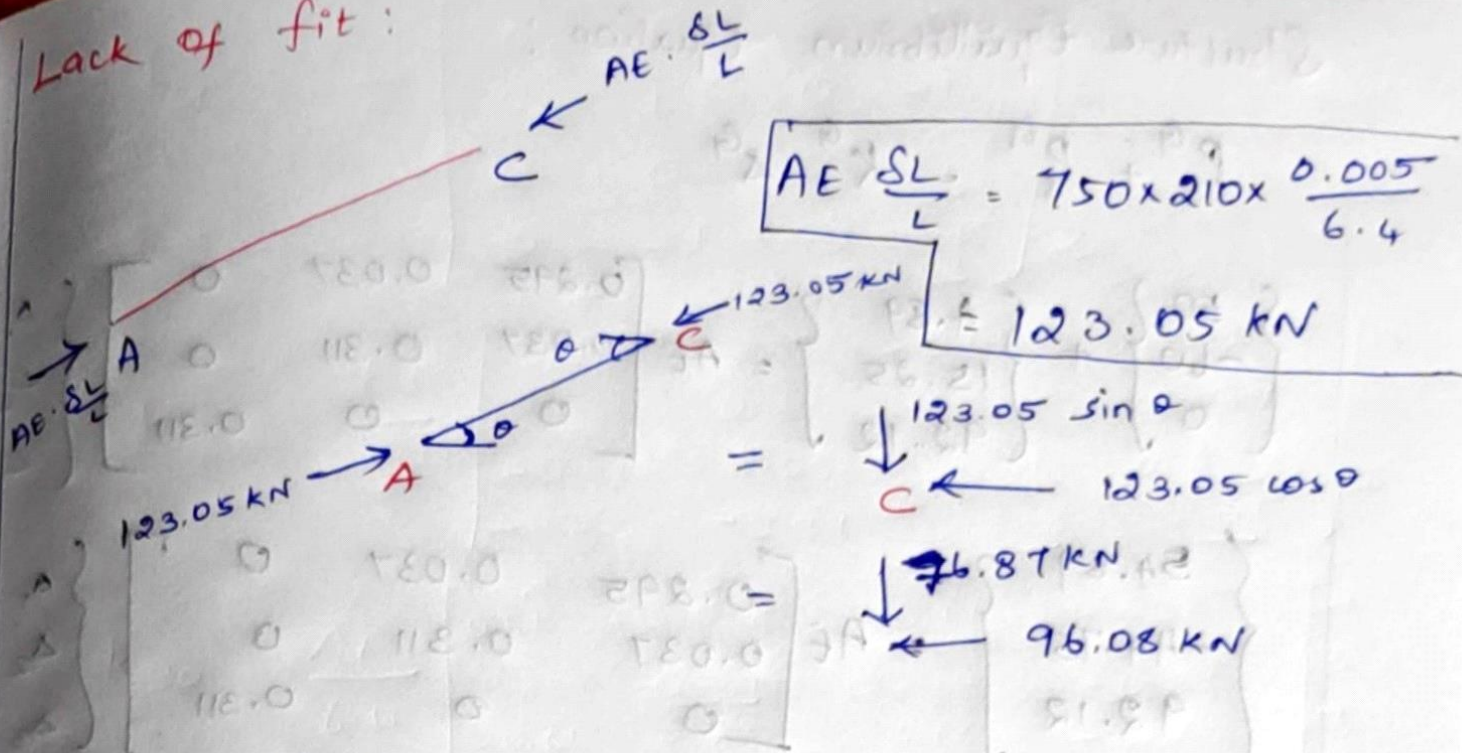 Lack of fit :
AE . δL/L
C
AE δL/L = 750x210x 0.005/6.4
= 123.05 kN
A
AE . δL/L
123.05 kN
θ C
θ
A
123.05 kN
= 123.05 sin θ
C 123.05 cos θ
= 76.87 kN
96.08 kN